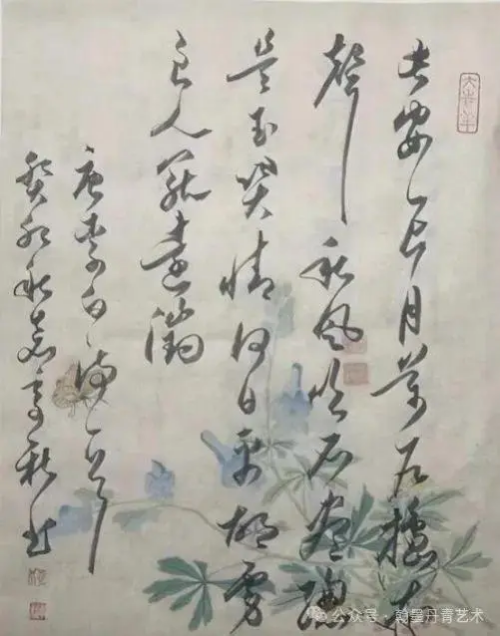 長安一片月萬戶擣衣
聲秋風吹不盡總
是玉關情何日平胡虜
良人罷遠征
唐李白詩一首
癸卯秋
公众号·翰墨丹青艺术